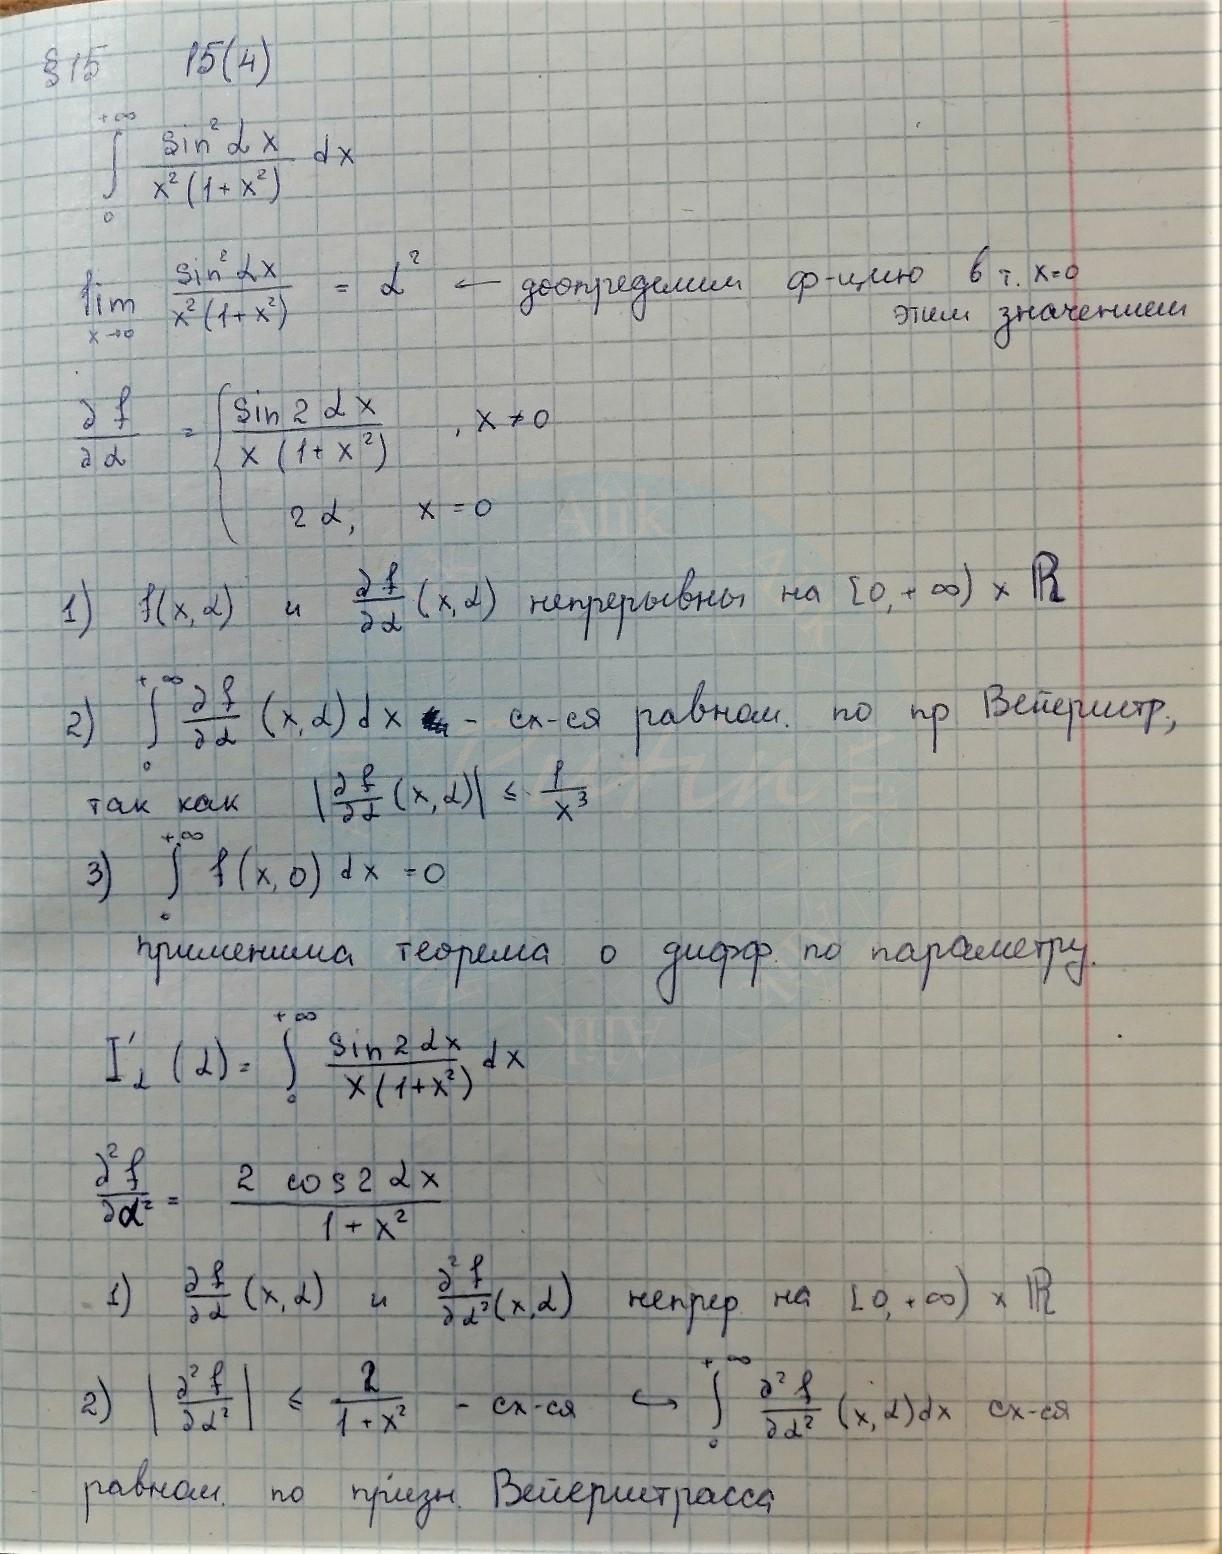 §15 15(4)
∫₀^{+∞} sin²αx / (x²(1+x²)) dx
lim_{x→0} sin²αx / (x²(1+x²)) = α² ← доопределим ф-цию в т. x=0
этим значением
∂f/∂α = { sin2αx / (x(1+x²)) , x≠0
2α, x=0
1) f(x,α) и ∂f/∂α (x,α) непрерывны на [0,+∞) × ℝ
2) ∫₀^{+∞} ∂f/∂α (x,α)dx - сх-ся равном. по пр Вейерштр,
так как |∂f/∂α (x,α)| ≤ 1/x³
3) ∫₀^{+∞} f(x,0) dx =0
применима теорема о дифф. по параметру.
I'_α (α)= ∫₀^{+∞} sin2αx / (x(1+x²)) dx
∂²f/∂α² = 2 cos2αx / (1+x²)
1) ∂f/∂α (x,α) и ∂²f/∂α² (x,α) непрер на [0,+∞) × ℝ
2) |∂²f/∂α²| ≤ 2/(1+x²) - сх-ся ↪ ∫₀^{+∞} ∂²f/∂α² (x,α)dx сх-ся
равном. по призн. Вейерштрасса
Alik
Alik